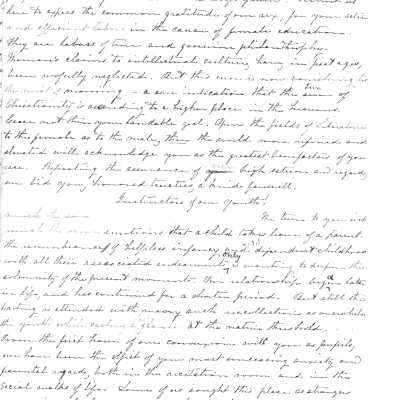 dare to express the common gratitude of our sex, for your active
and efficient labors in the cause of female education.
They are labors of true and genuine philanthropy.
Woman's claims to intellectual culture, have in past ages,
been wofully neglected. But this error is now vanishing like
the mist of morning — a sure indication that the sun of
Christianity is ascending to a higher place in the heavens.
Cease not then your laudable zeal. Open the fields of Literature
to the female as to the male, then the world more refined and
elevated will acknowledge you as the greatest benefactors of your
race. Repeating the assurance of our high esteem and regard,
we bid you, honored trustees, a kind farewell.
Instructors of our Youth!
We turn to you with
much the same
much the same emotions that a child takes leave of a parent.
the remembrances of helpless infancy and dependent childhood
with all their associated endearments, only to deepen the
solemnity of the present moment. Our relationship began late
in life, and has continued for a shorter period. But still this
parting is attended with many such recollections as
the youth while casting a glance at the native threshold.
From the first hour of our connexion with you as pupils,
we have been the object of your most unceasing anxiety and
parental regard, both in the recitation room and in the
social walks of life. Some of us sought this place as strangers